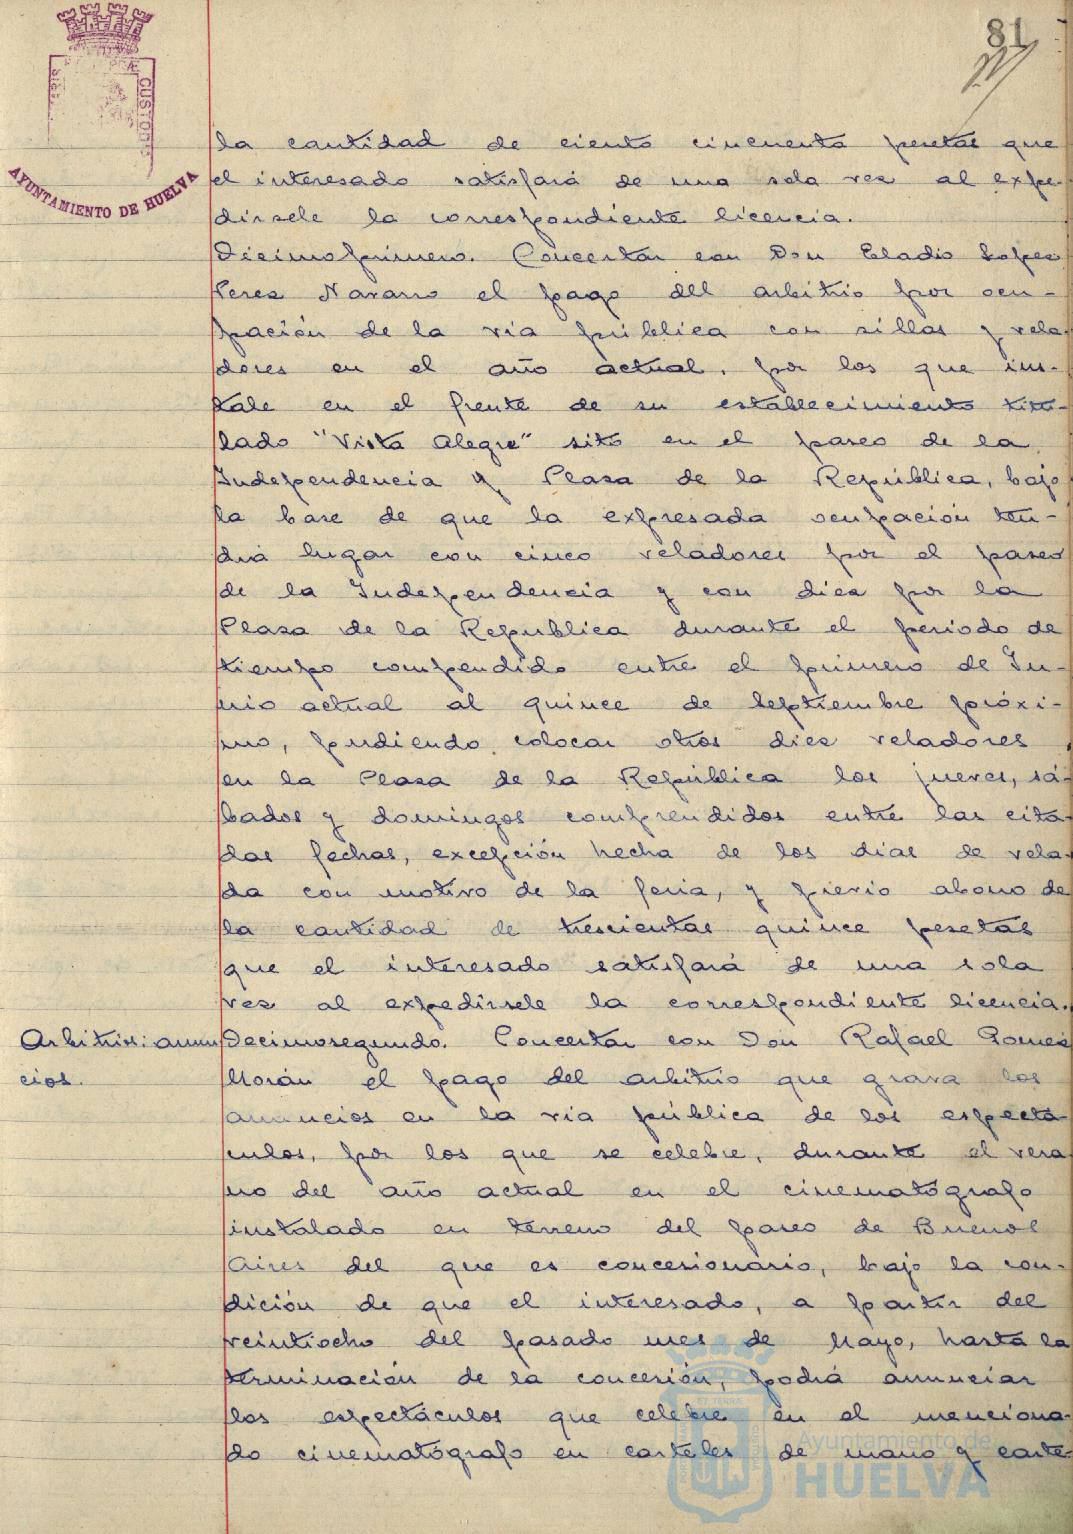 81
CUSTODIA
AYUNTAMIENTO DE HUELVA
la cantidad de ciento cincuenta pesetas que
el interesado satisfará de una sola vez al expe-
dirsele la correspondiente licencia.
Décimoprimero. Concertar con Don Eladio Lopez
Perez Navarro el pago del arbitrio por ocu-
pación de la vía pública con sillas y vela-
dores en el año actual, por los que ins-
tale en el frente de su establecimiento titu-
lado "Vista Alegre" sito en el paseo de la
Independencia y Plaza de la República, bajo
la base de que la expresada ocupación ten-
drá lugar con cinco veladores por el paseo
de la Independencia y con diez por la
Plaza de la Republica durante el periodo de
tiempo compendido entre el primero de Ju-
nio actual al quince de Septiembre próxi-
mo, pudiendo colocar otros diez veladores
en la Plaza de la República los jueves, sá-
bados y domingos comprendidos entre las cita-
das fechas, excepción hecha de los dias de vela-
da con motivo de la feria, y previo abono de
la cantidad de trescientas quince pesetas
que el interesado satisfará de una sola
vez al expedirsele la correspondiente licencia.
Arbitrios: anun
cios.
Decimosegundo. Concertar con Don Rafael Gomez
Morán el pago del arbitrio que grava los
anuncios en la vía pública de los espectá-
culos, por los que se celebre, durante el vera
no del año actual en el cinematógrafo
instalado en terreno del paseo de Buenos
Aires del que es concesionario, bajo la con-
dición de que el interesado, a partir del
veintiocho del pasado mes de Mayo, hasta la
terminación de la concesión, podrá anunciar
los espectáculos que celebre en el menciona-
do cinematógrafo en carteles de mano y carte-
Ayuntamiento de
HUELVA